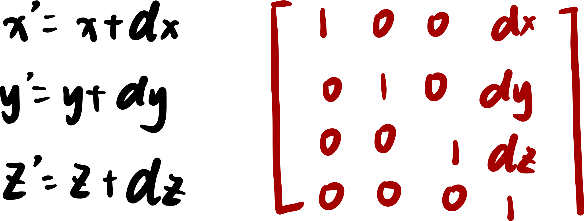 x' = x + dx
y' = y + dy
z' = z + dz
1 0 0 dx
0 1 0 dy
0 0 1 dz
0 0 0 1